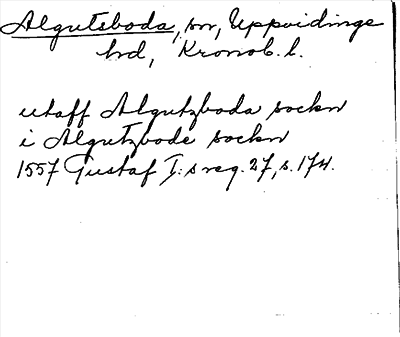 Algutsboda, sn, Uppvidinge
hd, Kronob. l.
utaff Algutzboda sockn
i Algutzbode sockn
1557 Gustaf I:s reg. 27, s. 174.